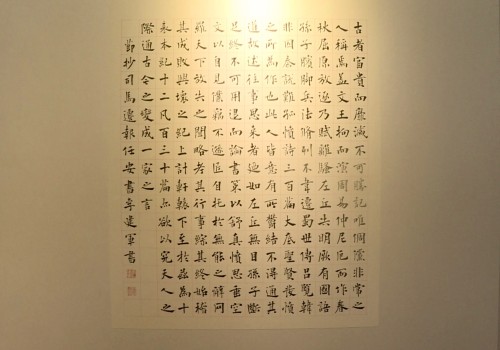 古者富貴而磨滅不可勝記唯倜儻非常之
人稱焉蓋文王拘而演周易仲尼厄而作春
秋屈原放逐乃賦離騷左丘失明厥有國語
孫子臏腳兵法脩列不韋遷蜀世傳呂覽韓
非囚秦說難孤憤詩三百篇大底聖賢發憤
之所為作也此人皆意有所鬱結不得通其
道故述往事思來者乃如左丘無目孫子斷
足終不可用退而論書策以舒其憤思垂空
文以自見僕竊不遜近自託於無能之辭網
羅天下放失之聞略考其行事綜其終始稽
其成敗興壞之紀上計軒轅下至於茲為十
表本紀十二凡百三十篇亦欲以究天人之
際通古今之變成一家之言
節抄司馬遷報任安書 建軍書